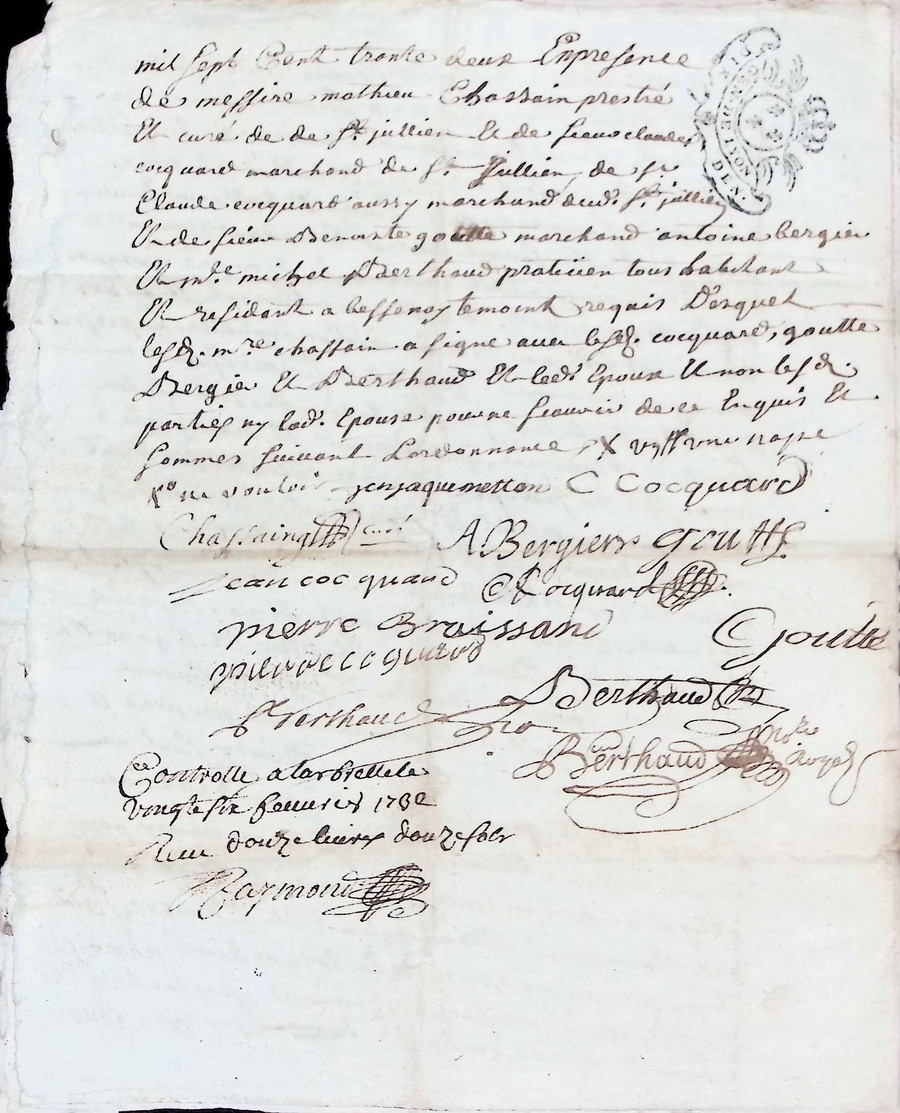 mil sept Cent trante deux Enpresence
de messire mathieu Chassain prestre
Et curé de de St jullien Et de sieur claude
cocquard marchand de St Jullien, de sr
Claude cocquard aussy marchand dud. St jullien
Et de sieur Benoiste goutte marchand antoine bergier
Et mre michel Berthaud praticien tous habitant
Et residant a bessenay temoint requis Desquel
lesd. mre chassain a signe avec lesd. cocquard, goutte
Bergier Et Berthaud Et led. Epoux Et non lesd.
parties ny lad. Epouse pour ne scavoir de ce Enquis Et
sommes suivant Lordonnance X une nape
Xo ne vouloir jean jaquemetton C Cocquard
Chassaing curé A Bergier goutte
jean cocquard C Cocquard
pierre Braissand C goutte
pierre cocquard
Berthaud Berthaud
Berthaud nore Royal
Controlle a larbrelle le
vingt six fevrier 1732
Receu douze livres douze sols
Raymond
GEN. DE LYON
DEN.